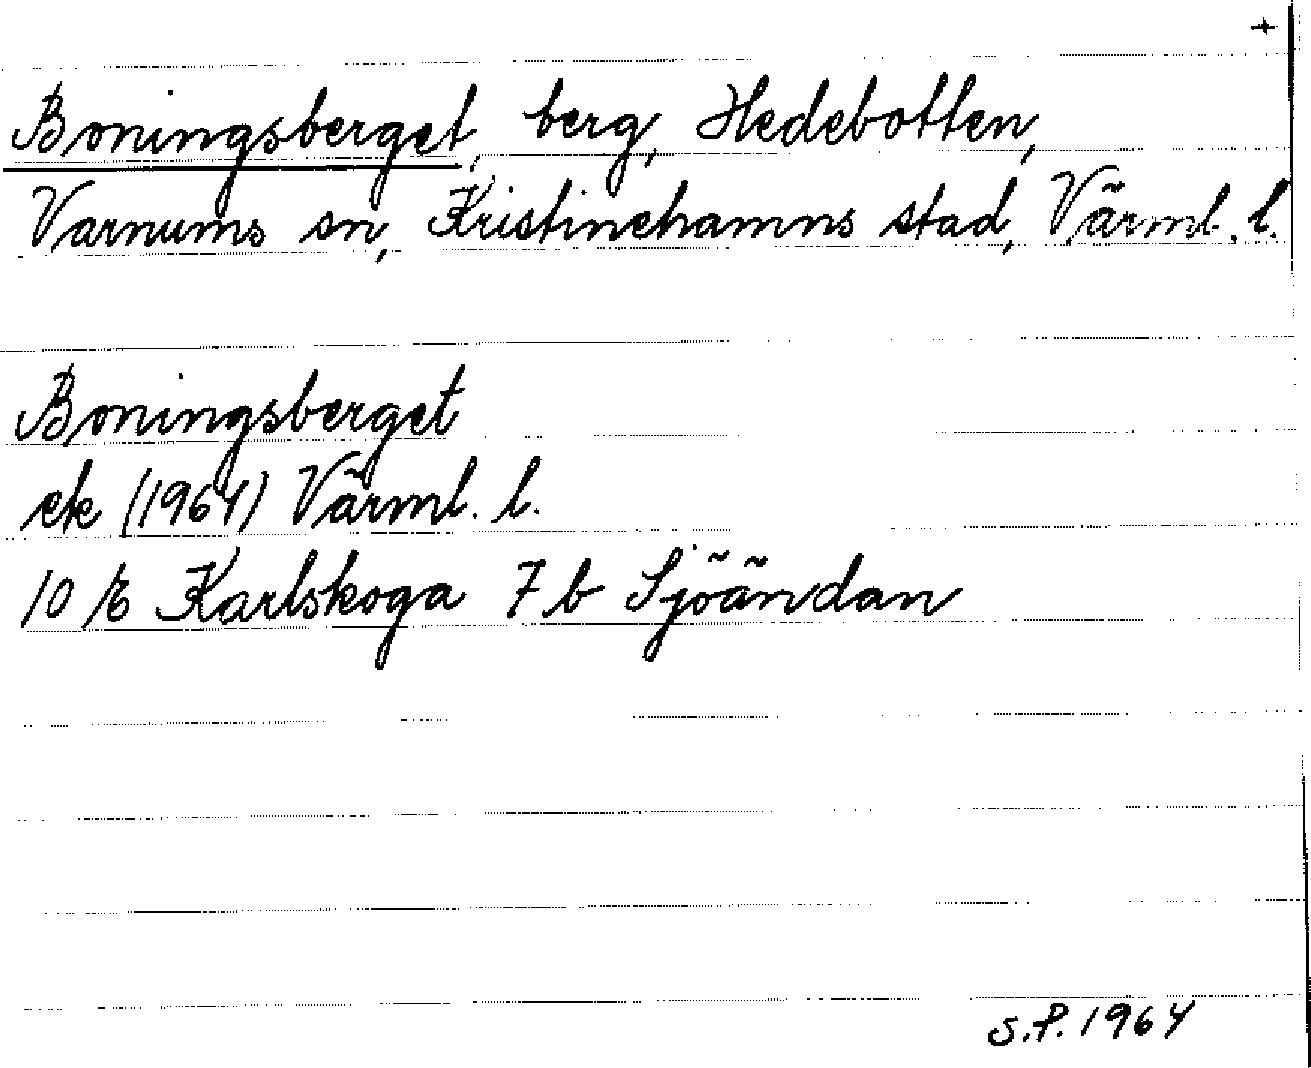 +
Boningsberget, berg, Hedebotten,
Varnums sn, Kristinehamns stad, Värml. l.
Boningsberget
ek (1964) Värml. l.
10 E Karlskoga 7 b Sjöändan
S.P. 1964